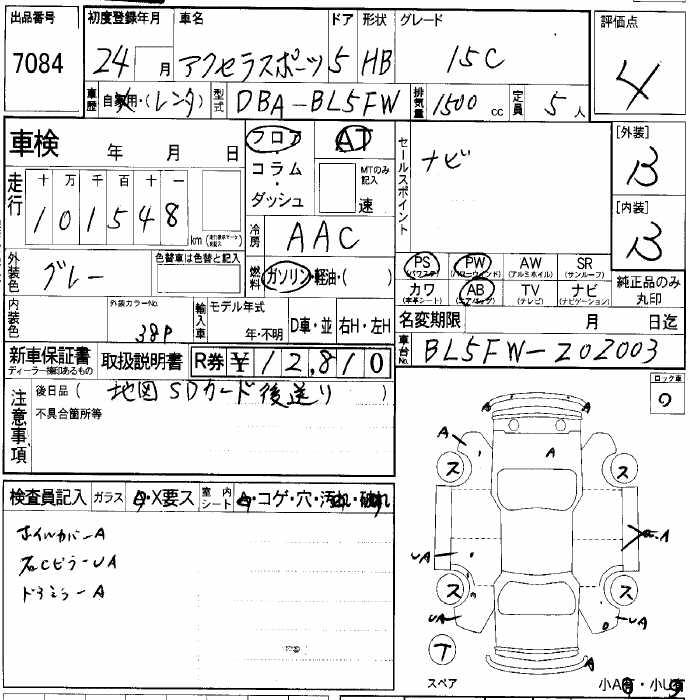 出品番号 初度登録年月 車名 ドア 形状 グレード 評価点
7084 24 月 アクセラスポーツ 5 HB 15C 4
車歴 自家用・(レンタ) 型式 DBA-BL5FW 排気量 1500 cc 定員 5 人
車検 年 月 日 フロア AT セールスポイント ナビ [外装] B
コラム・ダッシュ MTのみ記入 速
走行 十 万 千 百 十 一
101548 km
冷房 AAC [内装] B
外装色 グレー 色替車は色替と記入 燃料 ガソリン・軽油・( )
PS (パワステ) PW (パワーウィンド) AW (アルミホイル) SR (サンルーフ) 純正品のみ丸印
カワ (本革シート) AB (エアバッグ) TV (テレビ) ナビ (ナビゲーション)
内装色 外装カラーNo. 38P 輸入車 モデル年式 年・不明 D車・並 右H・左H
名変期限 月 日迄
新車保証書 取扱説明書 R券 ¥12,810 車台No. BL5FW-202003
ディーラー捺印あるもの
注意事項 後日品 ( 地図SDカード後送り )
不具合箇所等
ロック車
検査員記入 ガラス A・X要ス 室内シート A・コゲ・穴・汚れ・破れ
ホイルカバーA
右CピラーUA
ドアミラーA
A A
A A
ス ス
UA A
ス ス
UA UA
T
スペア 小A・小U